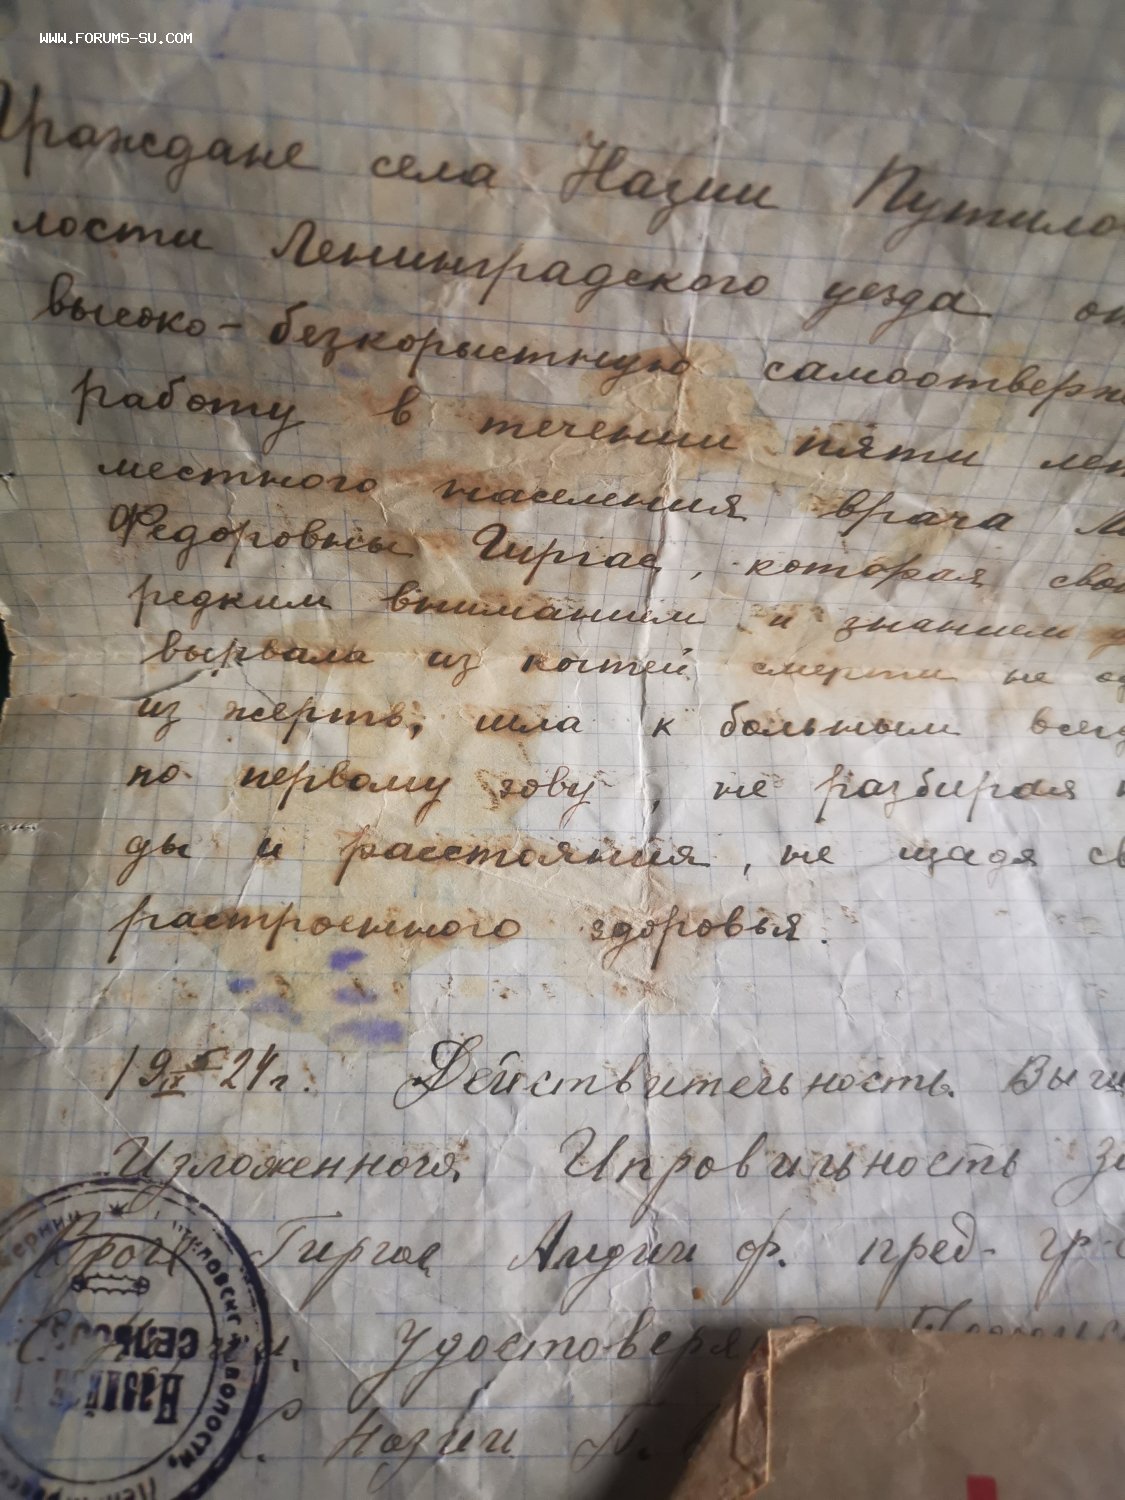 WWW.FORUMS-SU.COM
Граждане села Назии Путило
лости Ленинградского уезда от
высоко-безкорыстную самоотверже
работу в течении пяти лет
местного населения врача
Федоровны Гиргас, которая сво
редким вниманием и знанием
вырвала из когтей смерти не од
из жертв, шла к больным всегд
по первому зову, не разбирая
ды и расстояния, не щадя св
растроенного здоровья.
19 24г. Действительность Выш
Изложенного. Иправильность
Врача Гиргас Лидии Ф. пред- гр-
Удостоверя
Назии
Назий
сельсо
волости,